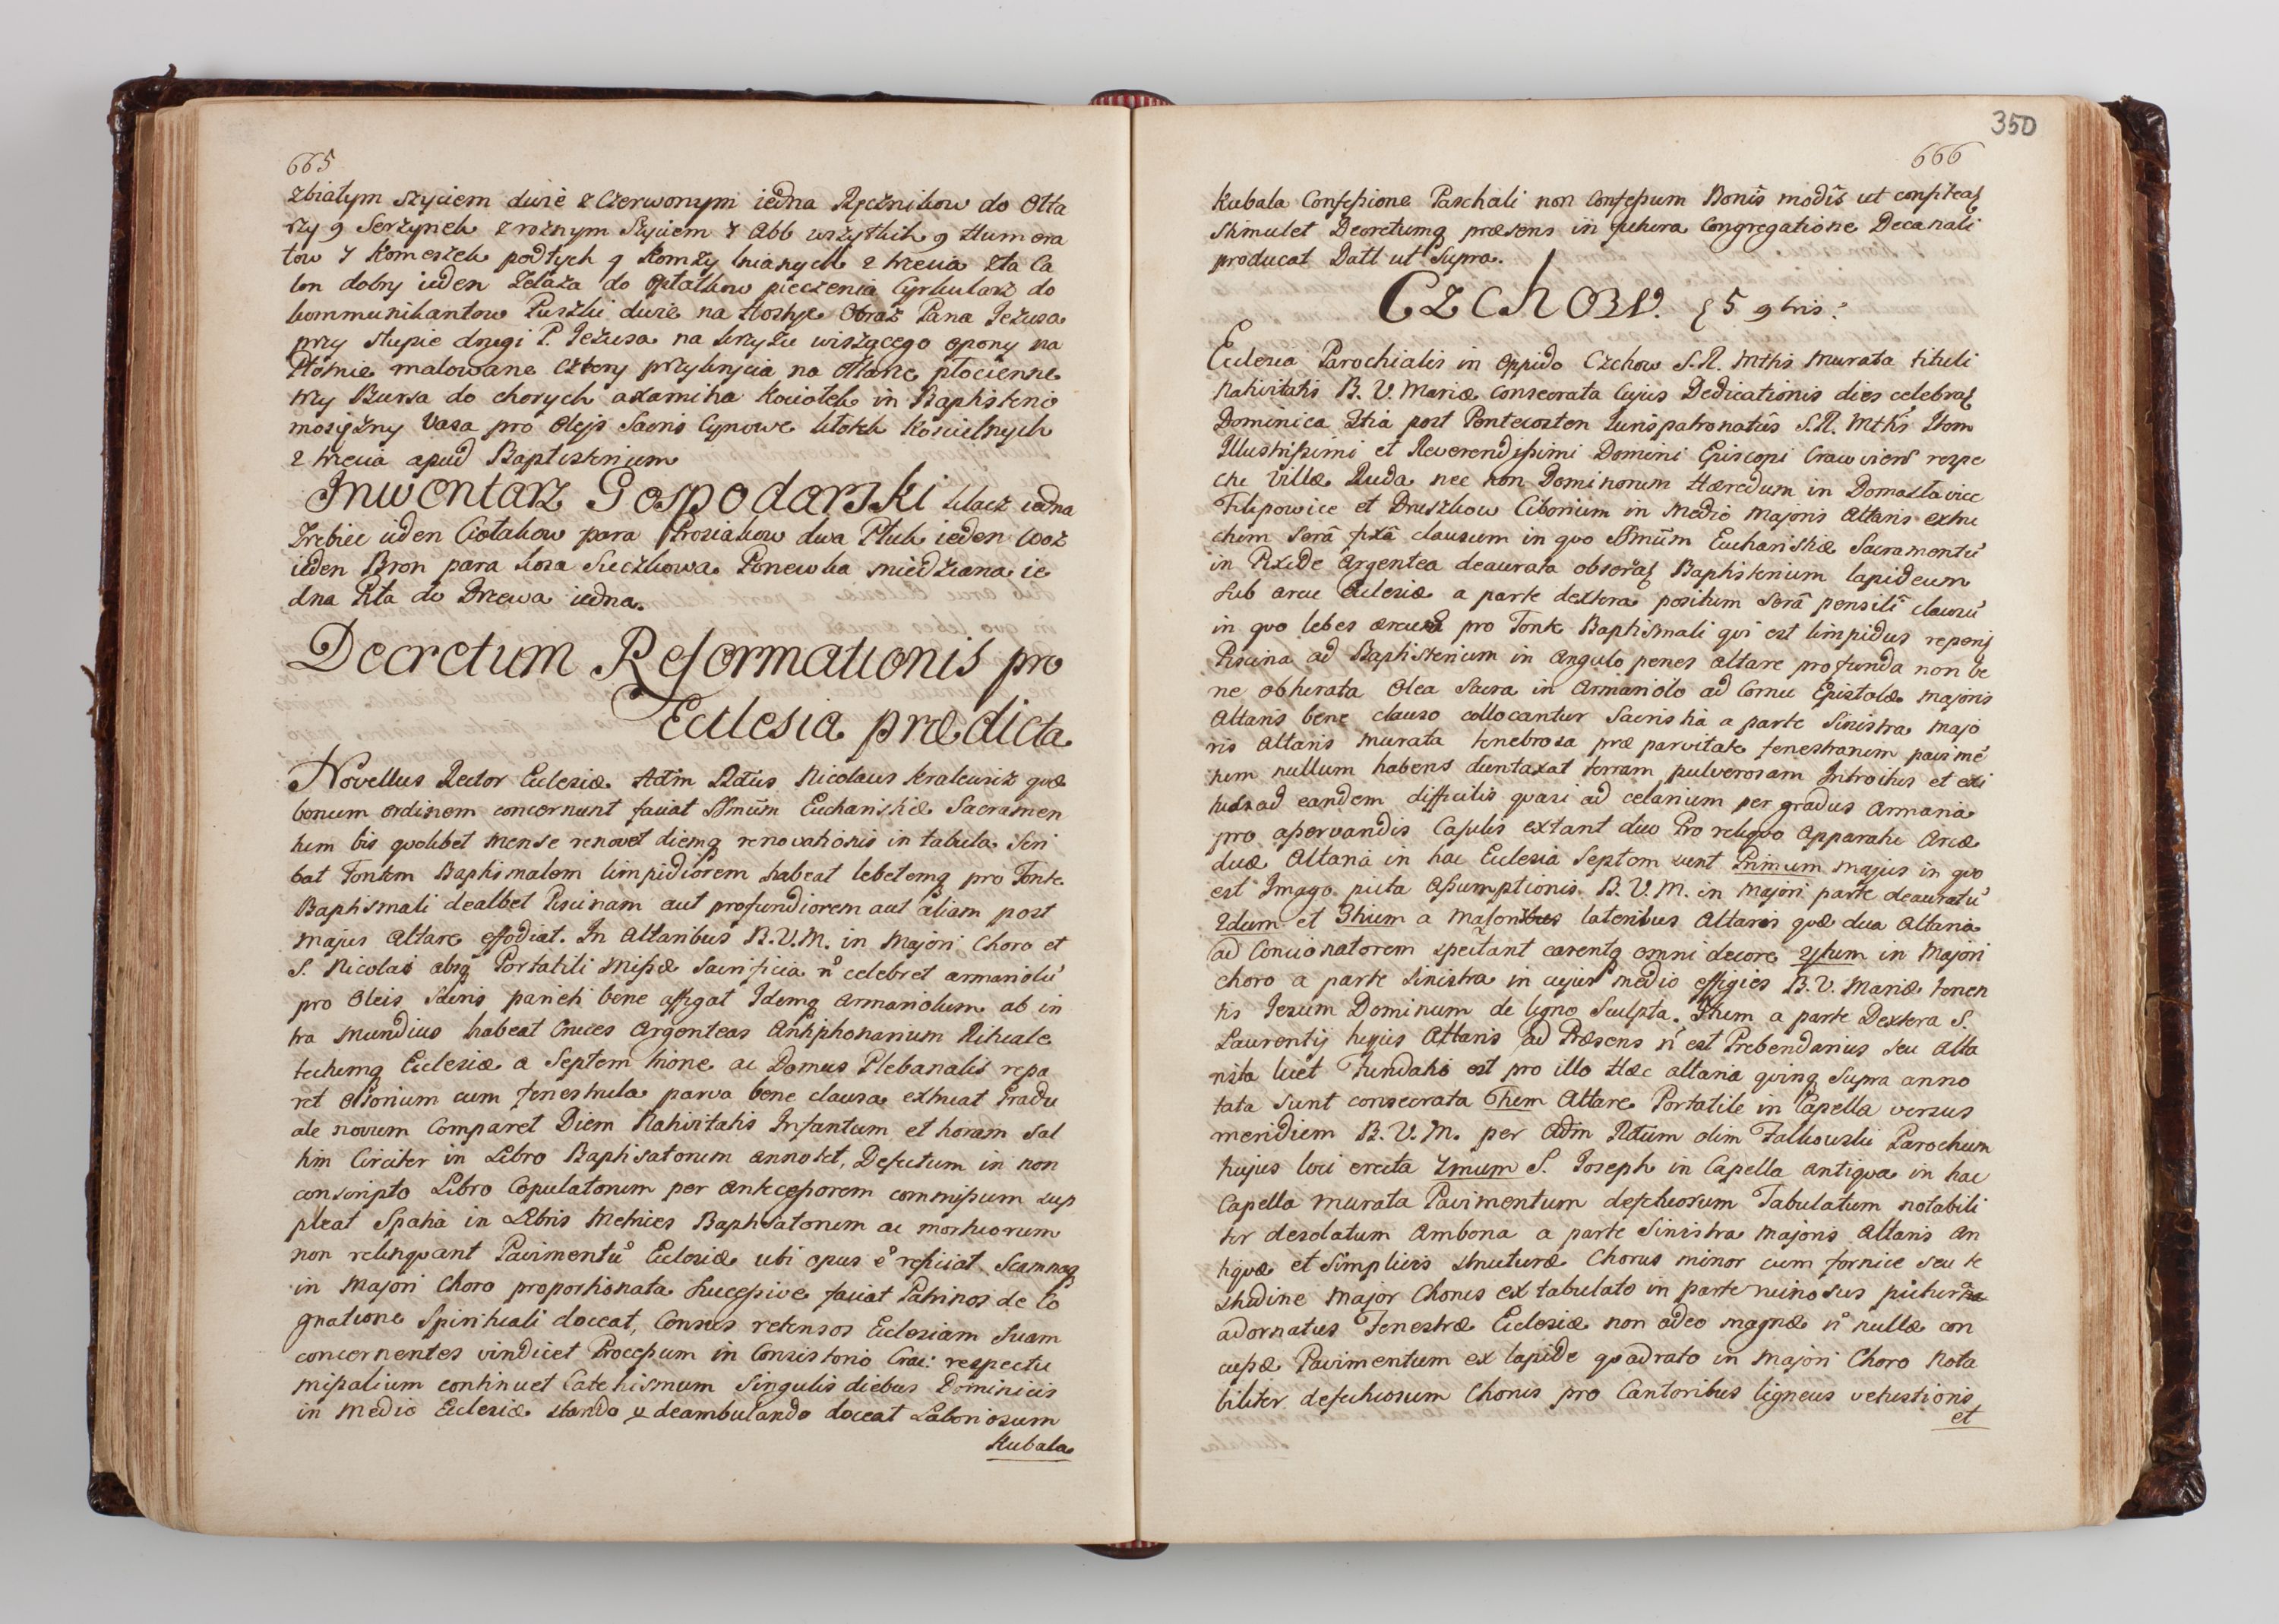 665
zbiałym szyciem dwie z Czerwonym iedna Ręcznikow do Ołta
rzy 9 Serzynek z roznym Szyciem 7 Abb wszytkich 9 Humera
tow 7 Komeszek podłych 9 Komży lnianych z trzecia zła Ca
lon dobry ieden Zelaza do opłatkow pieczenia Cyrkularz do
kommunikantow Puszki dwie na Hostye Obraz Pana Jezusa
przy słupie drugi P. Jezusa na krzyżu wiszącego opony na
Płótnie malowane cztery przykrycia na Ołtarze płocienne
trzy Bursa do chorych axamitna Kociołek in Baptisterio
mosiężny Vasa pro Olejs Sacris Cynowe kłotek Koscielnych
2 trzecia apud Baptisterium
Inwentarz Gospodarski klacz iedna
Zrebiec ieden Ciołakow para Prosiakow dwa Pług ieden Woz
ieden Bron para kosa Sieczkowa Ponewka miedziana ie
dna Piła do Drzewa iedna.
Decretum Reformationis pro
Ecclesia prædicta
Novellus Rector Ecclesiæ Adm Rndus Nicolaus Kralewicz quæ
bonum ordinem concernunt faciat SSmum Eucharistiæ Sacramen
tum bis quolibet mense renovet diemq renovationis in tabula scri
bat Fontem Baptismalem limpidiorem habeat lebetemq pro Fonte
Baptismali dealbet Piscinam aut profundiorem aut aliam post
majus Altare effodiat. In Altaribus B.V.M. in Majori Choro et
S. Nicolai absq Portatili Missæ sacrificia n celebret armariolu
pro Oleis Sacris parieti bene affigat Idemq Armariolum ab in
tra mundius habeat Cruces Argenteas Antiphonarium Rituale
tectumq Ecclesiæ a Septem trione ac Domus Plebanalis repa
ret Ossorium cum fenestrula parva bene clausa extruat Gradu
ale novum Comparet Diem Nativitatis Infantum et horam sal
tim Circiter in Libro Baptisatorum annotet, Defectum in non
conscripto Libro Copulatorum per Antecessorem commissum sup
pleat Spatia in Libris Metrices Baptisatorum ac mortuorum
non relinquant Pavimentu Ecclesiæ ubi opus e reficiat Scamnaq
in Majori Choro proportionata successive faciat Patrinos de Co
gnatione Spirituali doceat, Census retensos Ecclesiam suam
concernentes vindicet Processum in Consistorio Crac: respectu
missalium continuet Catehismum Singulis diebus Dominicis
in medio Ecclesiæ stando & deambulando doceat Laboriosum
Kubala
350
666
Kubala Confessione Paschali non Confessum Bonis modis ut confiteat
stimulet Decretumq præsens in futura Congregatione Decanali
producat Datt ut Supra.
CZCHOW. { 5 9bris:
Ecclesia Parochialis in Oppido Czchow S.R. Mttis Murata tituli
Nativitatis B. V. Mariæ Consecrata Cujus Dedicationis dies celebrat
Dominica 2tia post Pentecosten Jurispatronatus S.R. Mttis Item
Illustrissimi et Reverendissimi Domini Episcopi Cracoviens respe
ctu Villæ Ruda nec non Dominorum Hæredum in Domaslavice
Filipowice et Druszkow Ciborium in Medio Majoris Altaris extru
ctum Serâ fixâ clausum in quo SSmum Eucharistiæ Sacramentu
in Pixide Argentea deaurata obserat Baptisterium lapideum
sub arcu Ecclesiæ a parte dextera positum Serâ pensili clausu
in quo lebes æreus pro Fonte Baptismali qvi est limpidus reponi
Piscina ad Baptisterium in Angulo penes altare profunda non be
ne obturata Olea Sacra in Armariolo ad Cornu Epistolæ majoris
Altaris bene clauso collocantur Sacristia a parte Sinistra Majo
ris Altaris Murata tenebrosa præ parvitate fenestrarum pavimē
tum nullum habens duntaxat terram pulverosam Introitus et exi
tus ad eandem difficilis quasi ad celarium per gradus Armaria
pro asservandis Casulis extant duo Pro reliquo Apparatu Arcæ
duæ Altaria in hac Ecclesia Septem sunt Primum Majus in quo
est Imago picta Assumptionis B.V.M. in majori parte deauratu
2dum et 3tium a majoribus lateribus Altaris quæ dua Altaria
ad Concionatorem spectant carentq omni decore 4tum in Majori
choro a parte Sinistra in cujus medio effigies B. V. Mariæ tenen
tis Jesum Dominum de ligno Sculpta. 5tum a parte Dextera S.
Laurentij hujus Altaris ad Præsens n est Prebendarius seu Alta
rista licet Fundatio est pro illo Hæc altaria quinq supra anno
tata sunt consecrata 6tum Altare Portatile in Capella versus
meridiem B. V. M. per Adm Rndum olim Falkowski Parochum
hujus loci erecta 7mum S. Joseph in Capella antiqua in hac
Capella murata Pavimentum defectuosum Tabulatum notabili
ter desolatum Ambona a parte Sinistra Majoris Altaris an
tiquæ et Simplicis structuræ Chorus minor cum fornice seu te
studine Major Chorus ex tabulato in parte ruinosus pictura
adornatus Fenestræ Ecclesiæ non adeo magnæ n nullæ con
cussæ Pavimentum ex lapide quadrato in Majori Choro nota
biliter defectuosum Chorus pro Cantoribus ligneus vetustioris
et